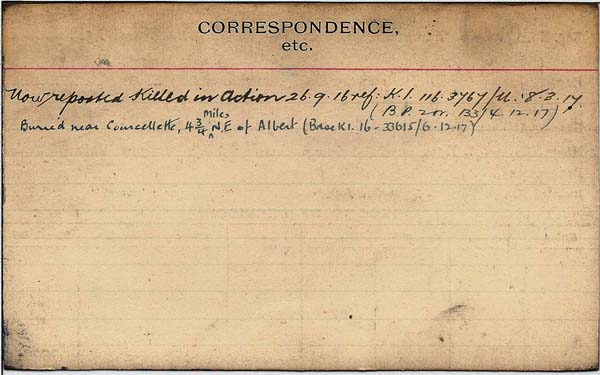 CORRESPONDENCE,
etc.
Now reported Killed in Action 26.9.16 ref: K.1. 116.3767/M. 8.3.17.
(B.P. 2 133/4.12.17)
Buried near Courcellette, 4 3/4 Miles N.E of Albert (Base K1. 16-33615/6.12.17)